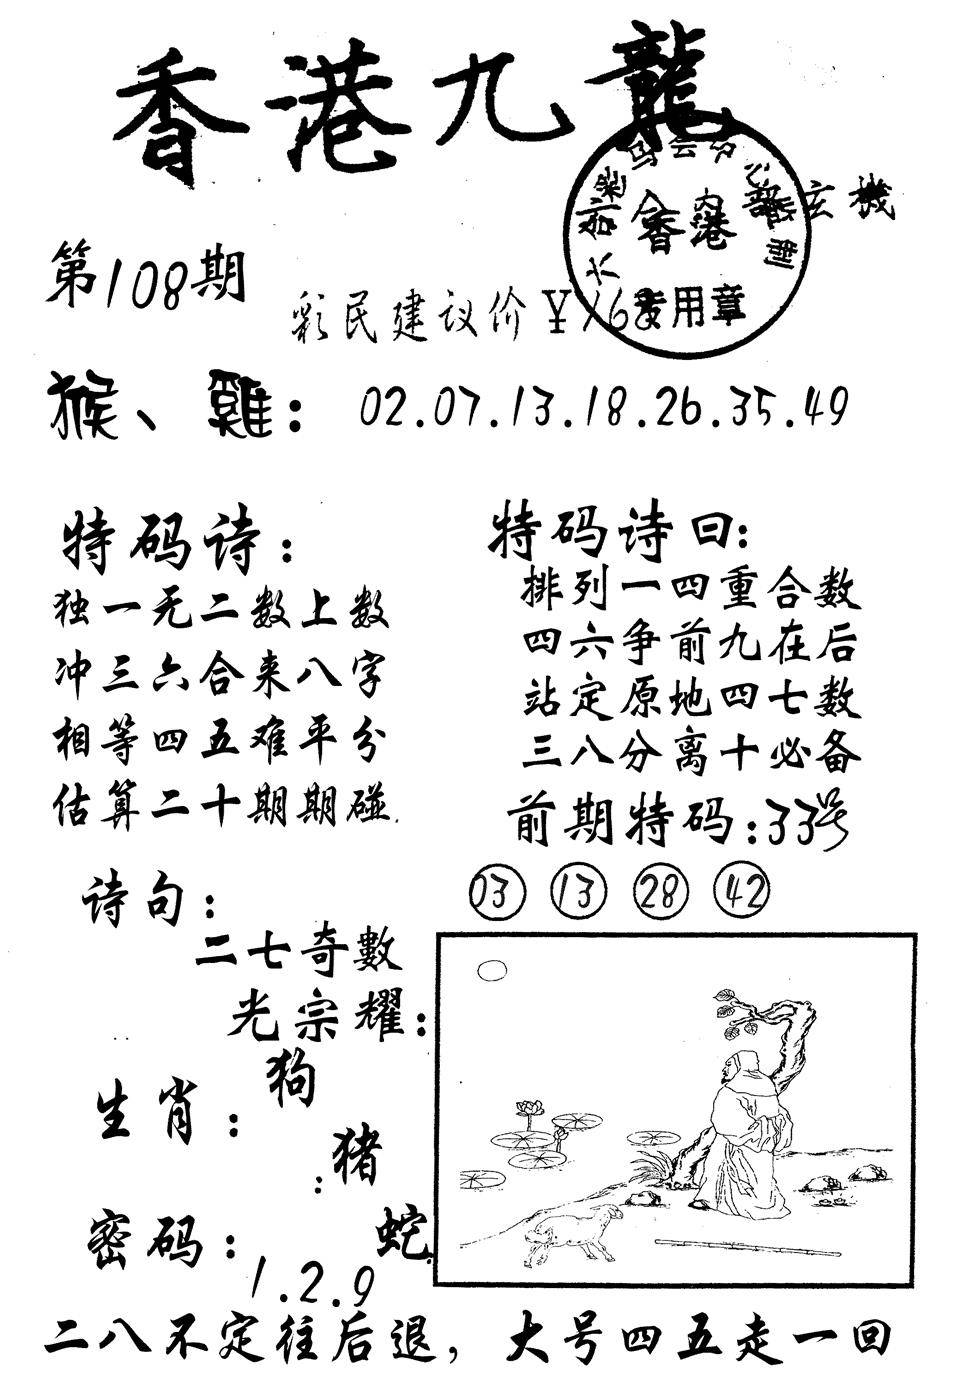 香港九龍
六合彩 马会 内部 玄機
香港
专用章
第108期
彩民建议价￥168
猴、雞：02.07.13.18.26.35.49
特码诗：
独一无二数上数
冲三六合来八字
相等四五难平分
估算二十期期碰.
特码诗曰：
排列一四重合数
四六争前九在后
站定原地四七数
三八分离十必备
前期特码：33号
03 13 28 42
诗句：
二七奇數
光宗耀：
生肖：狗
：猪
蛇
密码：1.2.9
二八不定往后退，大号四五走一回